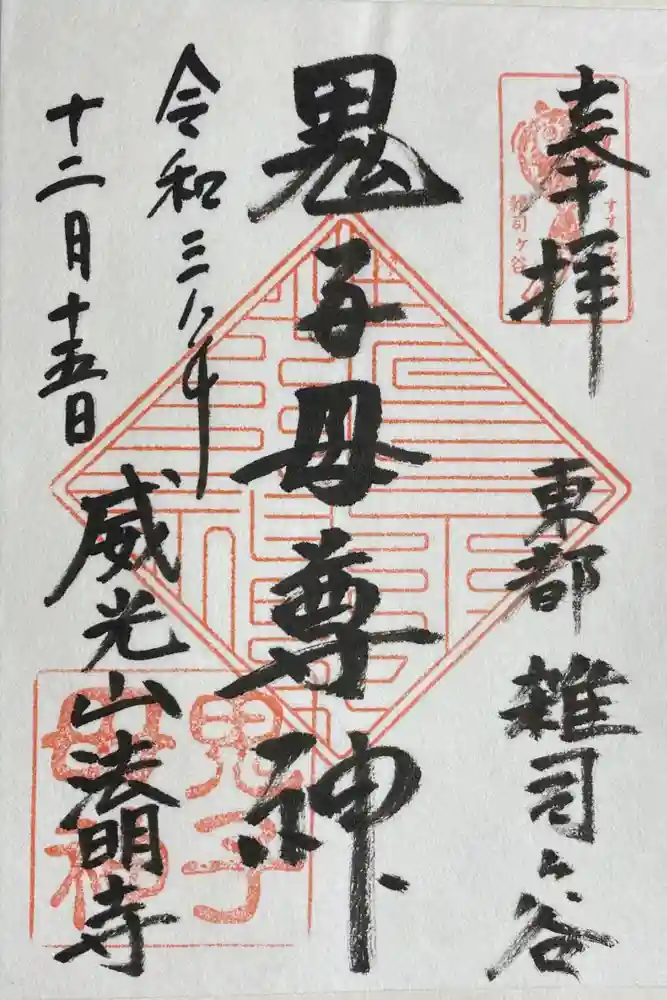 奉拝
東都 雑司ヶ谷
鬼子母尊神
令和三年
十二月十五日
威光山法明寺
雑司ヶ谷
鬼子
母神